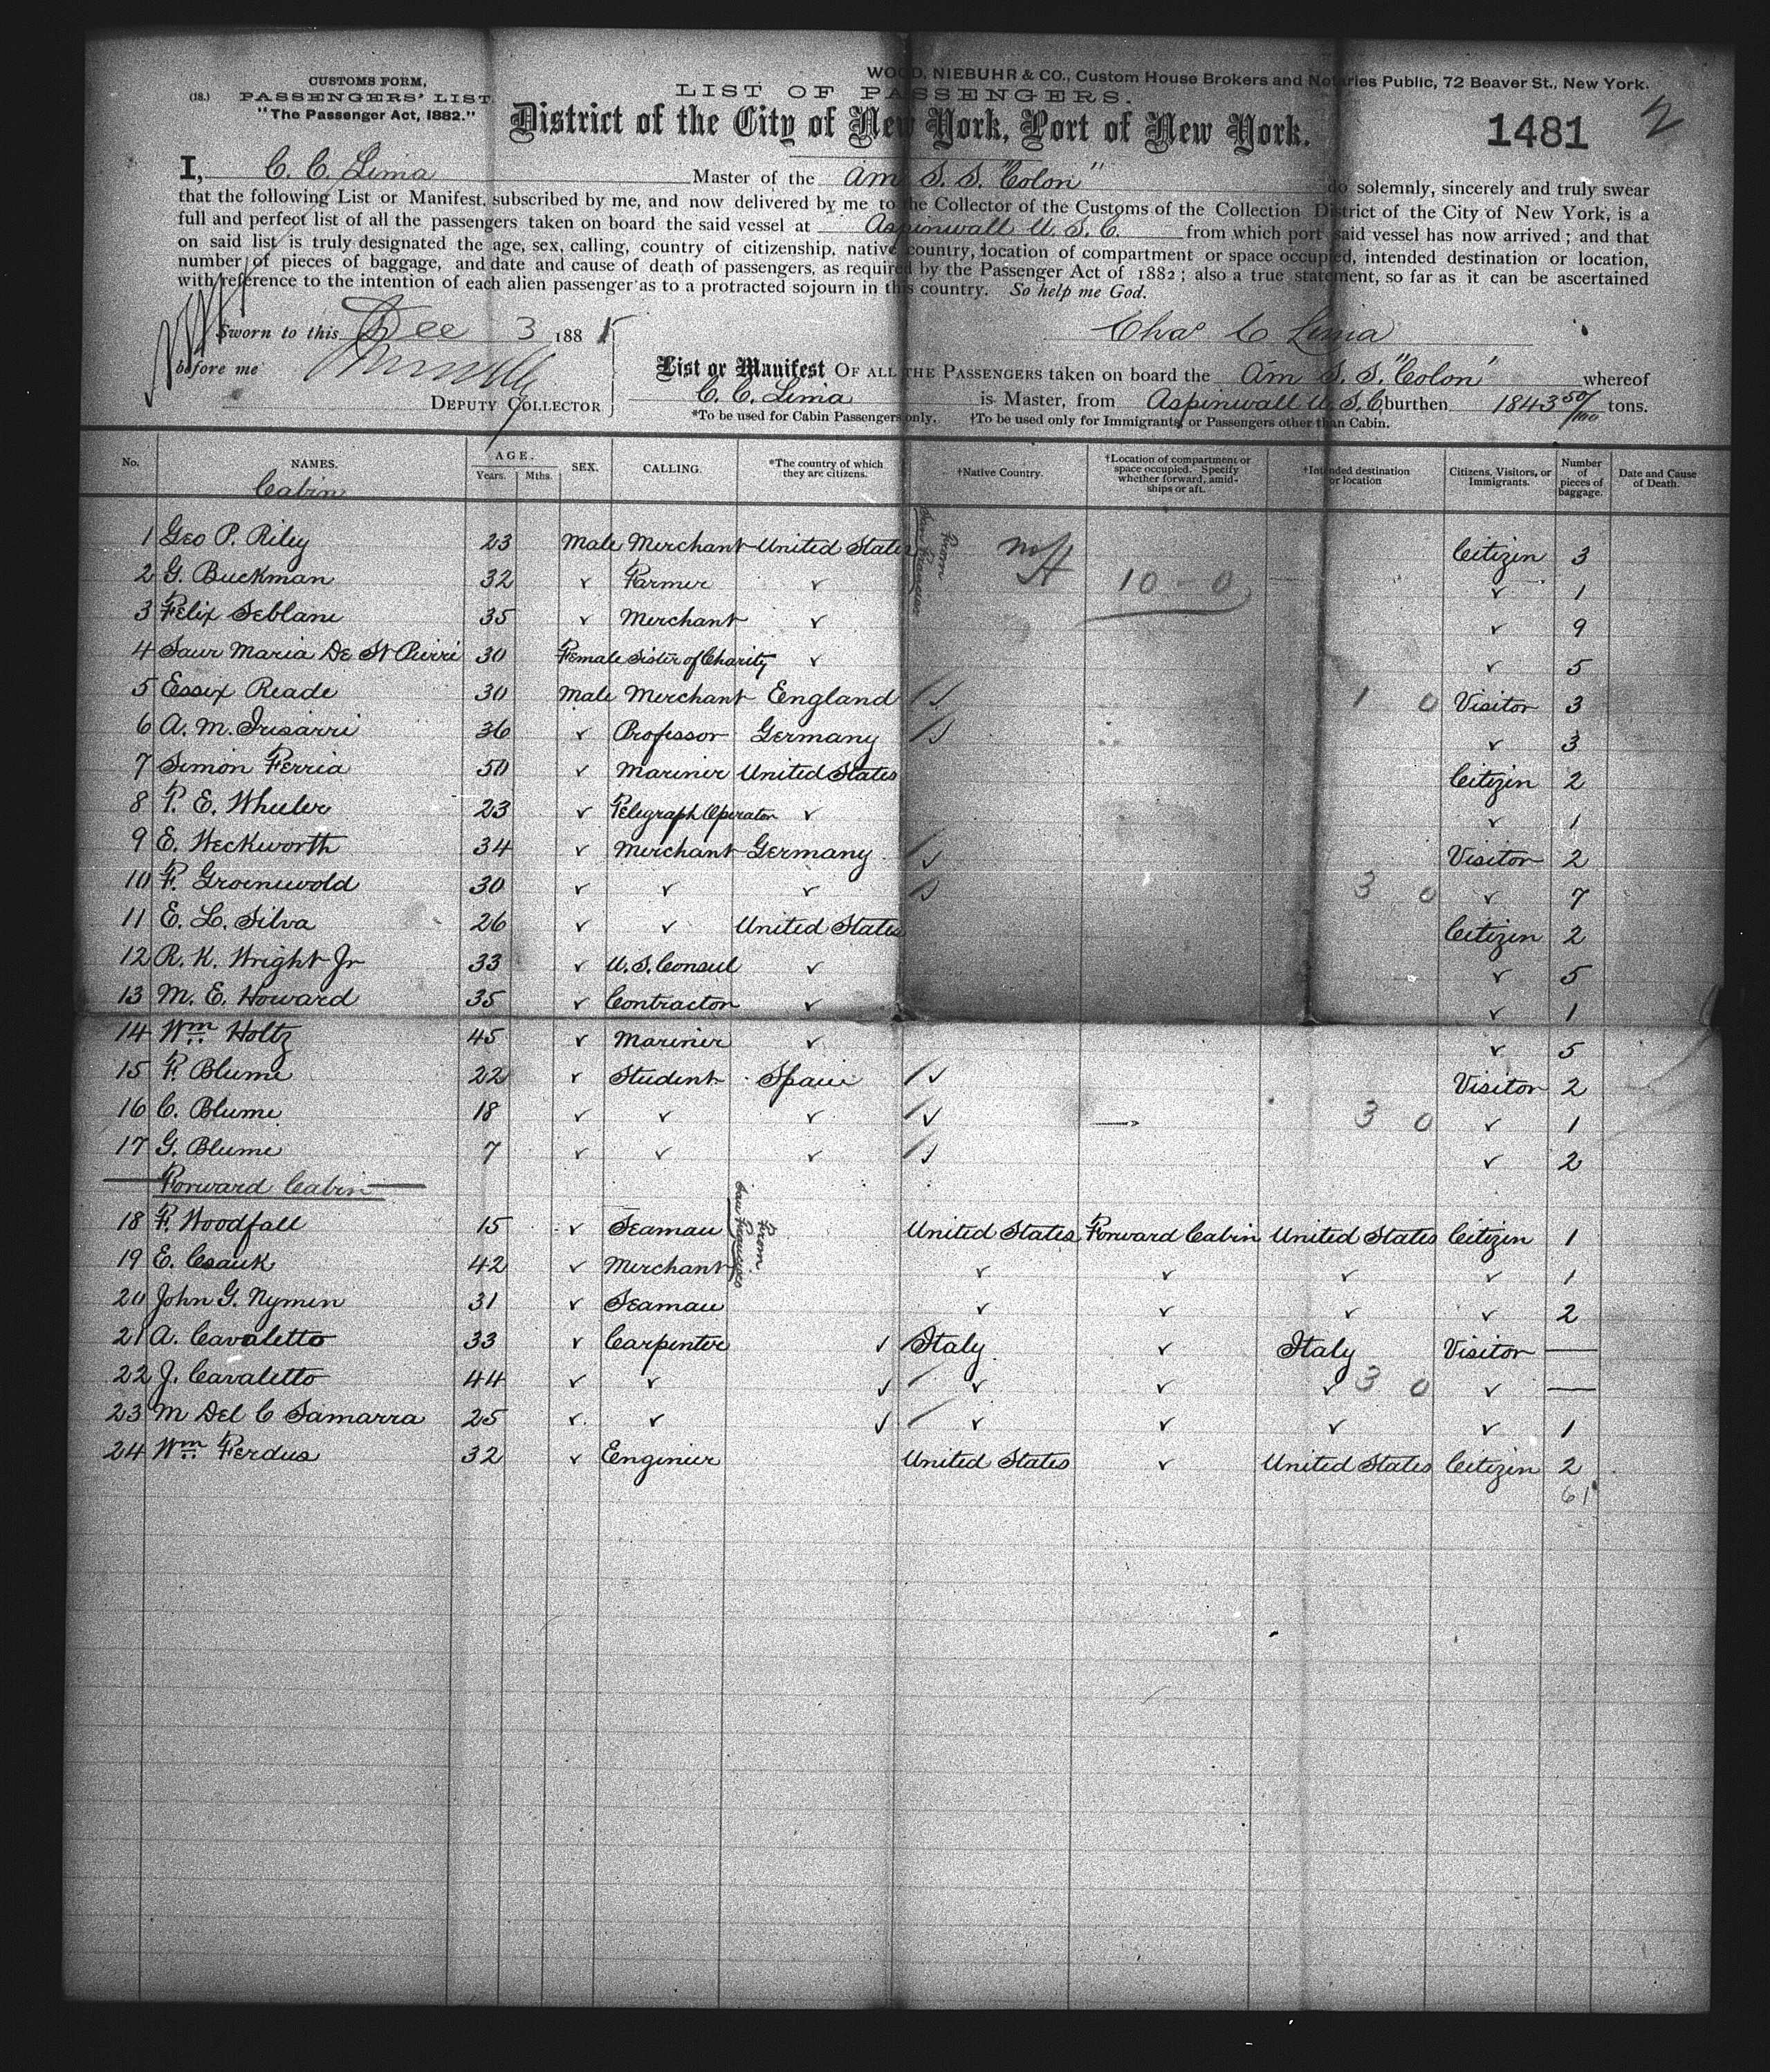 WOOD, NIEBUHR & CO., Custom House Brokers and Notaries Public, 72 Beaver St., New York.
CUSTOMS FORM,
(18.) PASSENGERS' LIST
"The Passenger Act, 1882."
LIST OF PASSENGERS.
District of the City of New York, Port of New York.
1481
2
I, C. C. Lima Master of the Am S. S. "Colon" do solemnly, sincerely and truly swear
that the following List or Manifest, subscribed by me, and now delivered by me to the Collector of the Customs of the Collection District of the City of New York, is a
full and perfect list of all the passengers taken on board the said vessel at Aspinwall U. S. C. from which port said vessel has now arrived; and that
on said list is truly designated the age, sex, calling, country of citizenship, native country, location of compartment or space occupied, intended destination or location,
number of pieces of baggage, and date and cause of death of passengers, as required by the Passenger Act of 1882; also a true statement, so far as it can be ascertained
with reference to the intention of each alien passenger as to a protracted sojourn in this country. So help me God.
Sworn to this Dec 3 1885
Chas C Lima
before me
DEPUTY COLLECTOR
List or Manifest OF ALL THE PASSENGERS taken on board the Am S. S. "Colon" whereof
C. C. Lima is Master, from Aspinwall U. S. C. burthen 1843 50/100 tons.
*To be used for Cabin Passengers only. †To be used only for Immigrants, or Passengers other than Cabin.
No. NAMES. AGE. Years. Mths. SEX. CALLING. *The country of which they are citizens. †Native Country. †Location of compartment or space occupied. Specify whether forward, amidships or aft. †Intended destination or location Citizens, Visitors, or Immigrants. Number of pieces of baggage. Date and Cause of Death.
Cabin
1 Geo P. Riley 23 Male Merchant United States From San Francisco Citizen 3
2 G. Buckman 32 ✓ Farmer ✓ 10 0 ✓ 1
3 Felix Leblanc 35 ✓ Merchant ✓ ✓ 9
4 Saur Maria De St Pierri 30 Female Sister of Charity ✓ ✓ 5
5 Essix Reade 30 Male Merchant England 1 0 Visitor 3
6 A. M. Irisarri 36 ✓ Professor Germany ✓ 3
7 Simon Ferria 50 ✓ Mariner United States Citizen 2
8 P. E. Wheeler 23 ✓ Telegraph Operator ✓ ✓ 1
9 E. Heckworth 34 ✓ Merchant Germany Visitor 2
10 F. Groenewold 30 ✓ ✓ ✓ 3 0 ✓ 7
11 E. L. Silva 26 ✓ ✓ United States Citizen 2
12 R. K. Wright Jr 33 ✓ U. S. Consul ✓ ✓ 5
13 M. E. Howard 35 ✓ Contractor ✓ ✓ 1
14 Wm Holtz 45 ✓ Mariner ✓ ✓ 5
15 F. Blume 22 ✓ Student Spain Visitor 2
16 C. Blume 18 ✓ ✓ ✓ 3 0 ✓ 1
17 G. Blume 7 ✓ ✓ ✓ ✓ 2
Forward Cabin
18 F. Woodfall 15 ✓ Seaman From San Francisco United States Forward Cabin United States Citizen 1
19 E. Csauk 42 ✓ Merchant ✓ ✓ ✓ ✓ 1
20 John G. Nymen 31 ✓ Seaman ✓ ✓ ✓ ✓ 2
21 A. Cavaletto 33 ✓ Carpenter ✓ Italy ✓ Italy Visitor —
22 J. Cavaletto 44 ✓ ✓ ✓ ✓ ✓ ✓ 3 0 ✓ —
23 M Del C Samarra 25 ✓ ✓ ✓ ✓ ✓ ✓ ✓ 1
24 Wm Ferdus 32 ✓ Engineer United States ✓ United States Citizen 2
61